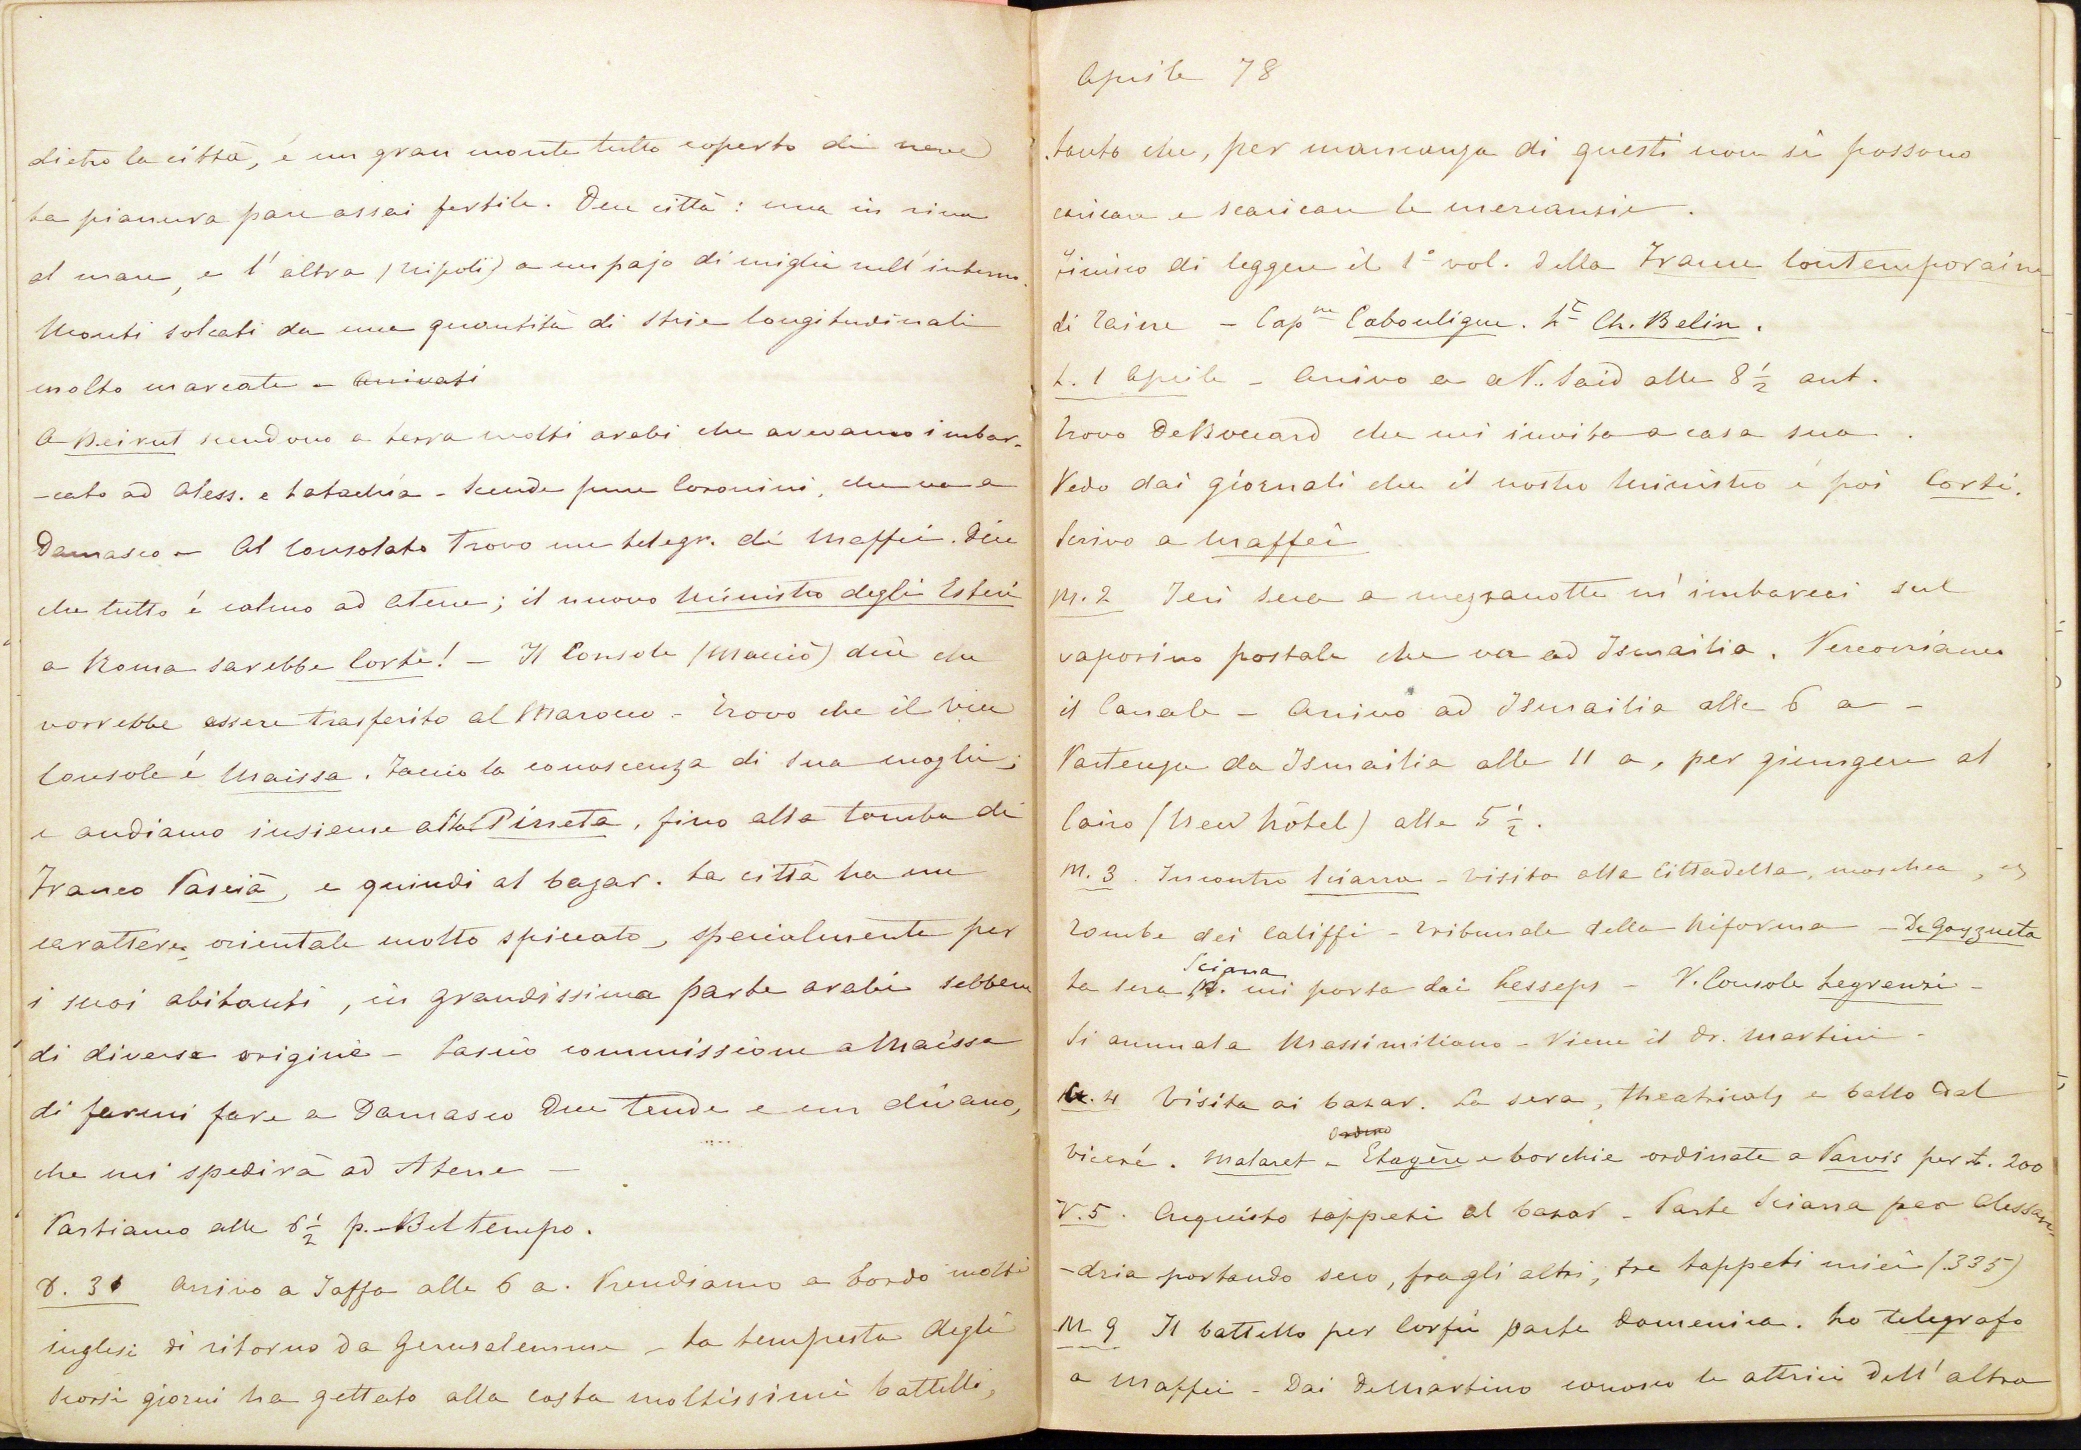 dietro la città, é un gran monte tutto coperto di neve
La pianura pare assai fertile. Due città: una in riva
al mare, e l'altra (Tripoli) a un pajo di miglia nell'interno.
Monti solcati da una quantità di strie longitudinali
molto marcate - Arrivati
A Beirut scendono a terra molti arabi che avevamo imbar-
-cato ad Aless. e Latachia - Scende pure Coronini, che va a
Damasco - Al Consolato trovo un telegr. di Maffei. Dice
che tutto é calmo ad Atene; il nuovo Ministro degli Esteri
a Roma sarebbe Corte! - Il Console (Macciò) dice che
vorrebbe essere trasferito al Marocco - Trovo che il Vice
Console é Maissa. Faccio la conoscenza di sua moglie;
e andiamo insieme alla Pineta, fino alla tomba di
Franco Pascià, e quindi al bazar. La città ha un
carattere orientale molto spiccato, specialmente per
i suoi abitanti, in grandissima parte arabi sebbene
di diversa origine - Lascio commissione a Maissa
di farmi fare a Damasco due tende e un divano,
che mi spedirà ad Atene -
Partiamo alle 6 1/2 p. - Bel tempo.
D. 31 Arrivo a Jaffa alle 6 a. Prendiamo a bordo molti
inglesi di ritorno da Gerusalemme - La tempesta degli
scorsi giorni ha gettato alla costa moltissimi battelli,
Aprile 78
tanto che, per mancanza di questi non si possono
caricare e scaricare le mercanzie.
Finisco di leggere il 1° vol. della France Contemporaine
di Taine - Cap.ne Caboulique. Lt Ch. Belin.
L. 1 Aprile - Arrivo a P. Said alle 8 1/2 ant.
Trovo DeBoccard che mi invita a casa sua.
Vedo dai giornali che il nostro Ministro é poi Corti.
Scrivo a Maffei
M. 2 Ieri sera a mezzanotte m'imbarcai sul
vaporino postale che va ad Ismailia. Percorriamo
il Canale - Arrivo ad Ismailia alle 6 a -
Partenza da Ismailia alle 11 a, per giungere al
Cairo (New Hôtel) alle 5 1/2.
M. 3. Incontro Sciarra - Visita alla Cittadella, moschea, e
Tombe dei Califfi - Tribunale della Riforma - De Goyzueta
La sera Sciarra mi porta dai Lesseps - V. Console Legrenzi -
Si ammala Massimiliano - Viene il Dr. Martini -
G. 4 Visita ai bazar. La sera, theatricals e ballo dal
Viceré. Malaret - Ordino Etagère e borchie ordinate a Parvis per £. 200
V. 5. Acquisto tappeti al bazar - Parte Sciarra per Alessan-
-dria portando seco, fra gli altri, tre tappeti miei (335)
M 9 Il battello per Corfù parte domenica. Lo telegrafo
a Maffei - Dai DeMartino conosco le attrici dell'altra